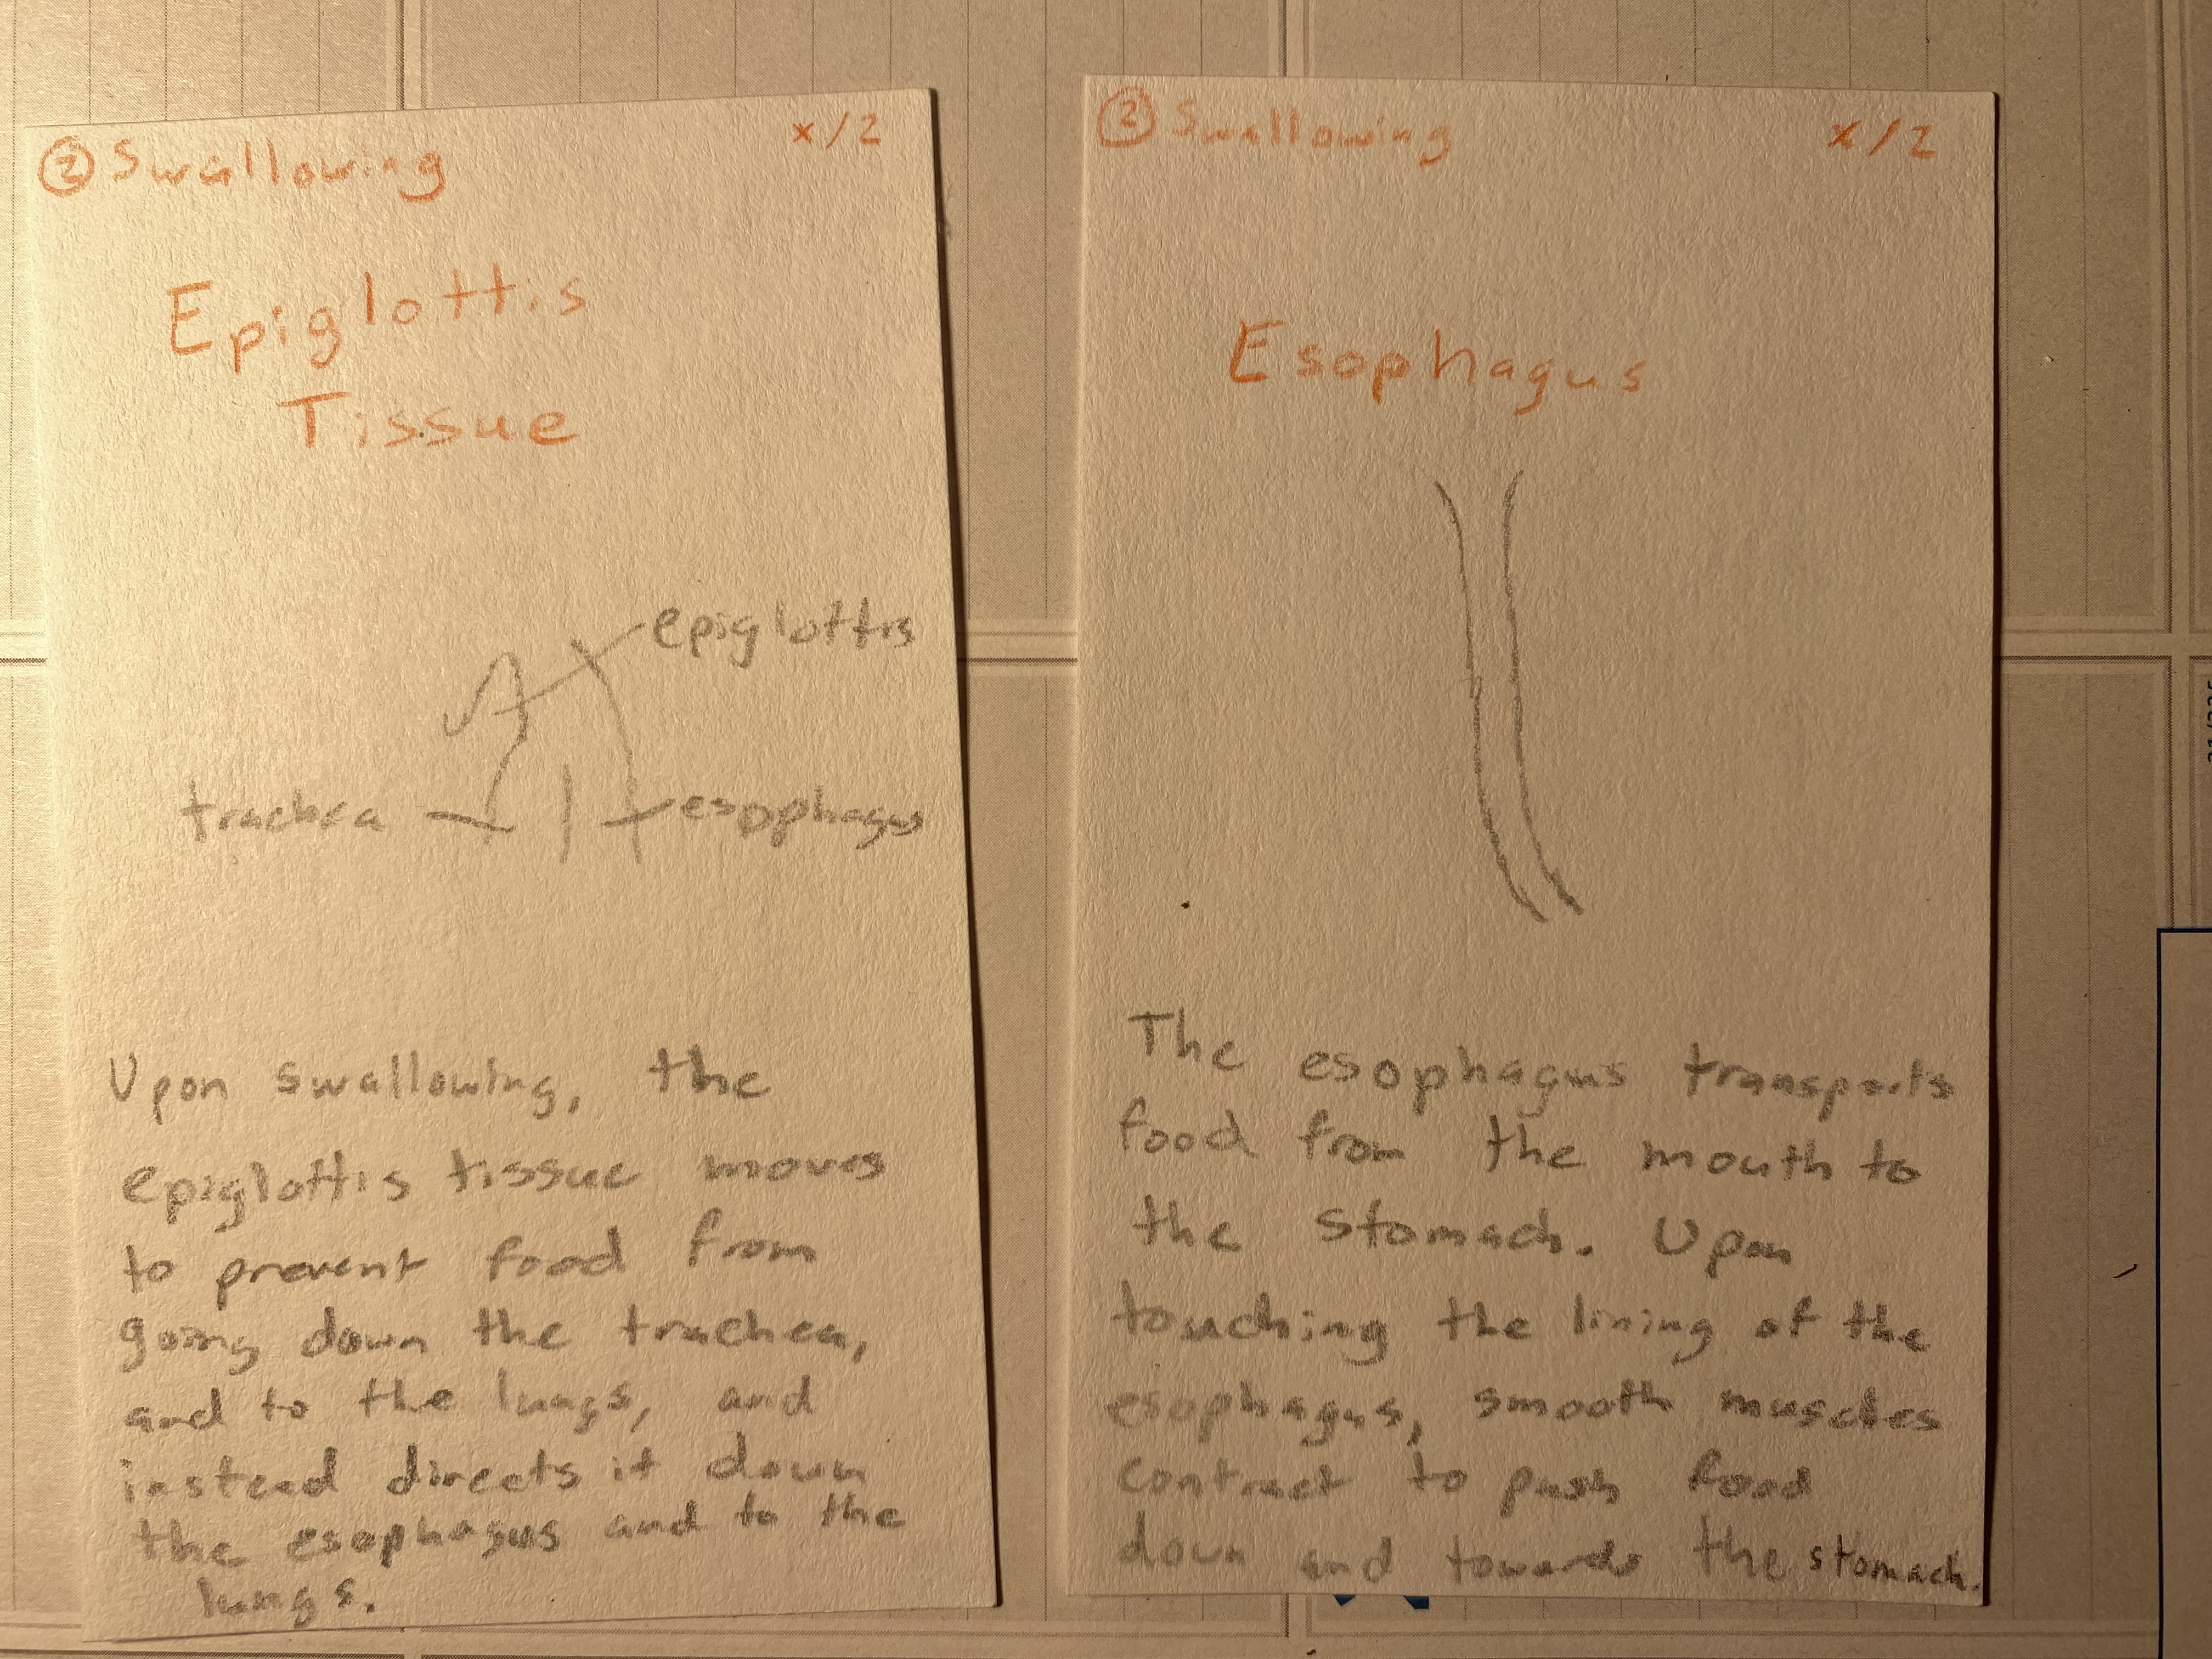 ② Swallowing x/2
Epiglottis
Tissue
epiglottis
trachea
esopphagus
Upon swallowing, the
epiglottis tissue moves
to prevent food from
going down the trachea,
and to the lungs, and
instead directs it down
the esophagus and to the
lungs.
② Swallowing x/2
Esophagus
The esophagus transports
food from the mouth to
the stomach. Upon
touching the lining of the
esophagus, smooth muscles
contract to push food
down and towards the stomach.